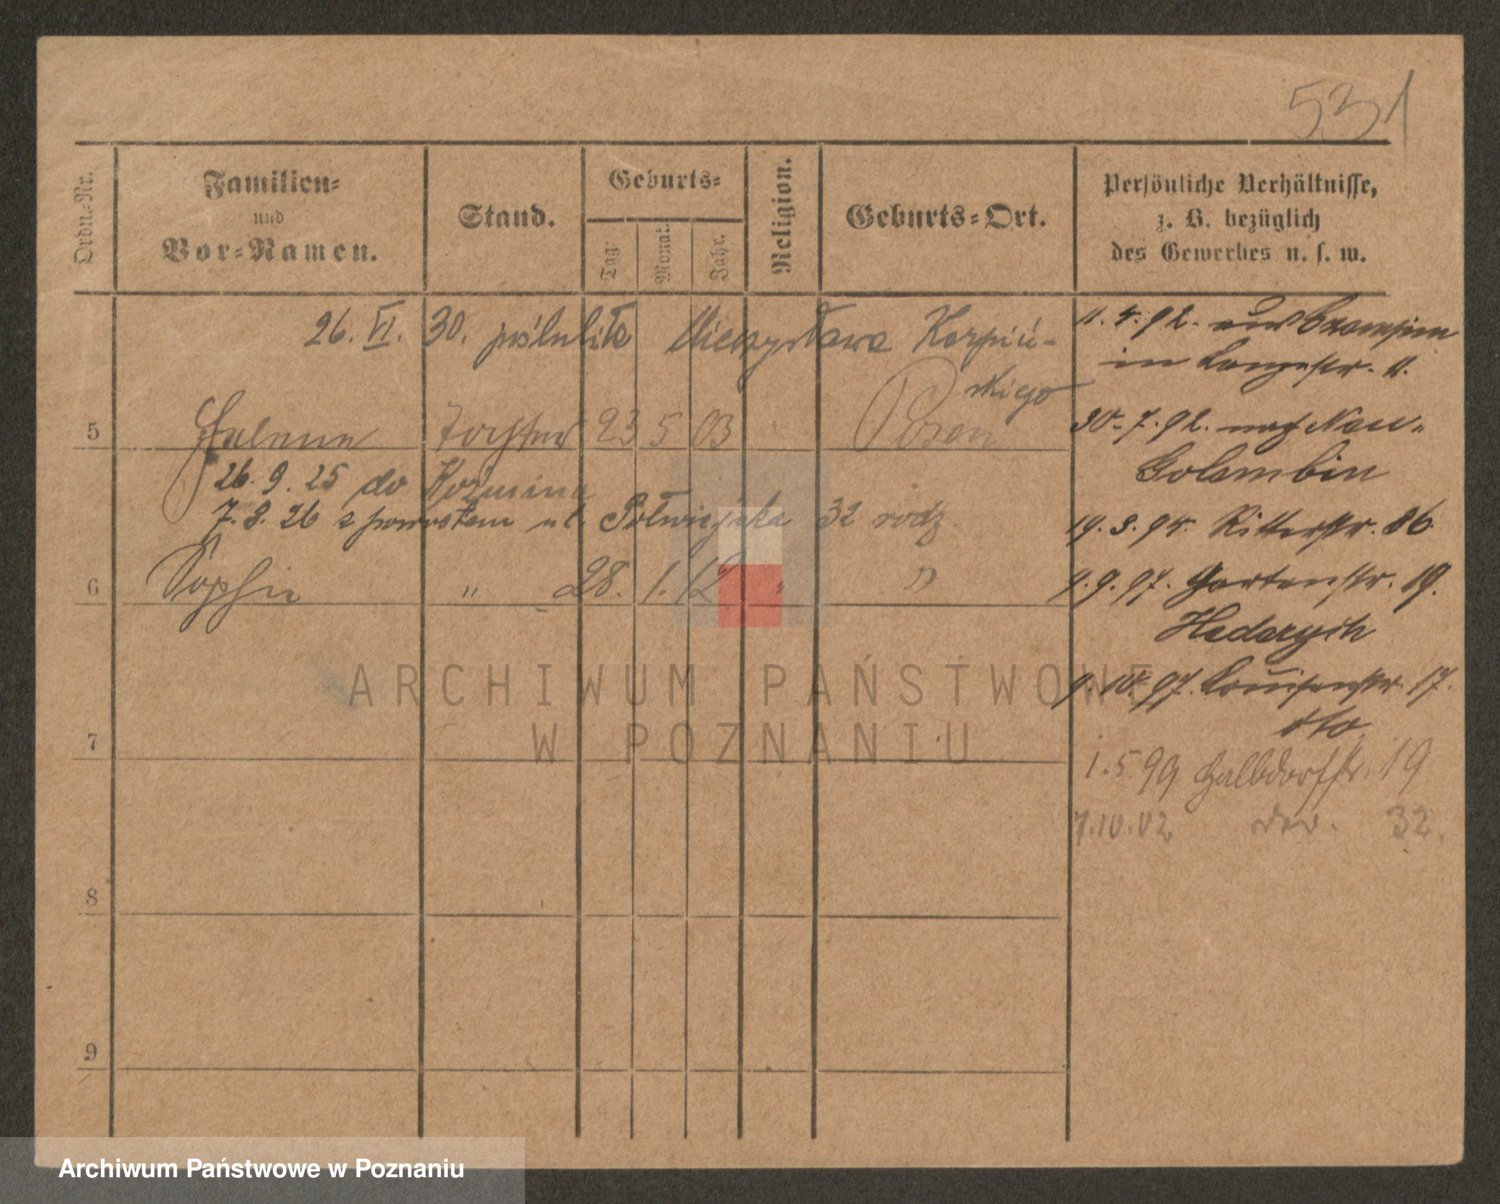 531
Ordn.-Nr.
Familien-
und
Vor-Namen.
Stand.
Geburts-
Tag.
Monat.
Jahr.
Religion.
Geburts-Ort.
Persönliche Verhältnisse,
z. B. bezüglich
des Gewerbes u. s. w.
26. VI. 30. poślubiła Mieczysława Karpiń-
skiego
5 Helene Tochter 23 5 03 Posen
26. 9. 25 do Koźmina
7. 8. 26 z powrotem ul. Półwiejska 32 rodz.
6 Sophie " 28. 1. 12 " "
7
8
9
11. 4. 92. aus
in Langestr. 11.
30. 7. 92. nach Neu-
Golembin
19. 3. 94. Ritterstr. 36
9. 9. 97. Gartenstr. 19.
9. 10. 97. Louisenstr. 17.
dto
1. 5 99 Halbdorfstr. 19
7. 10. 02 32.
ARCHIWUM PAŃSTWOWE
W POZNANIU
Archiwum Państwowe w Poznaniu